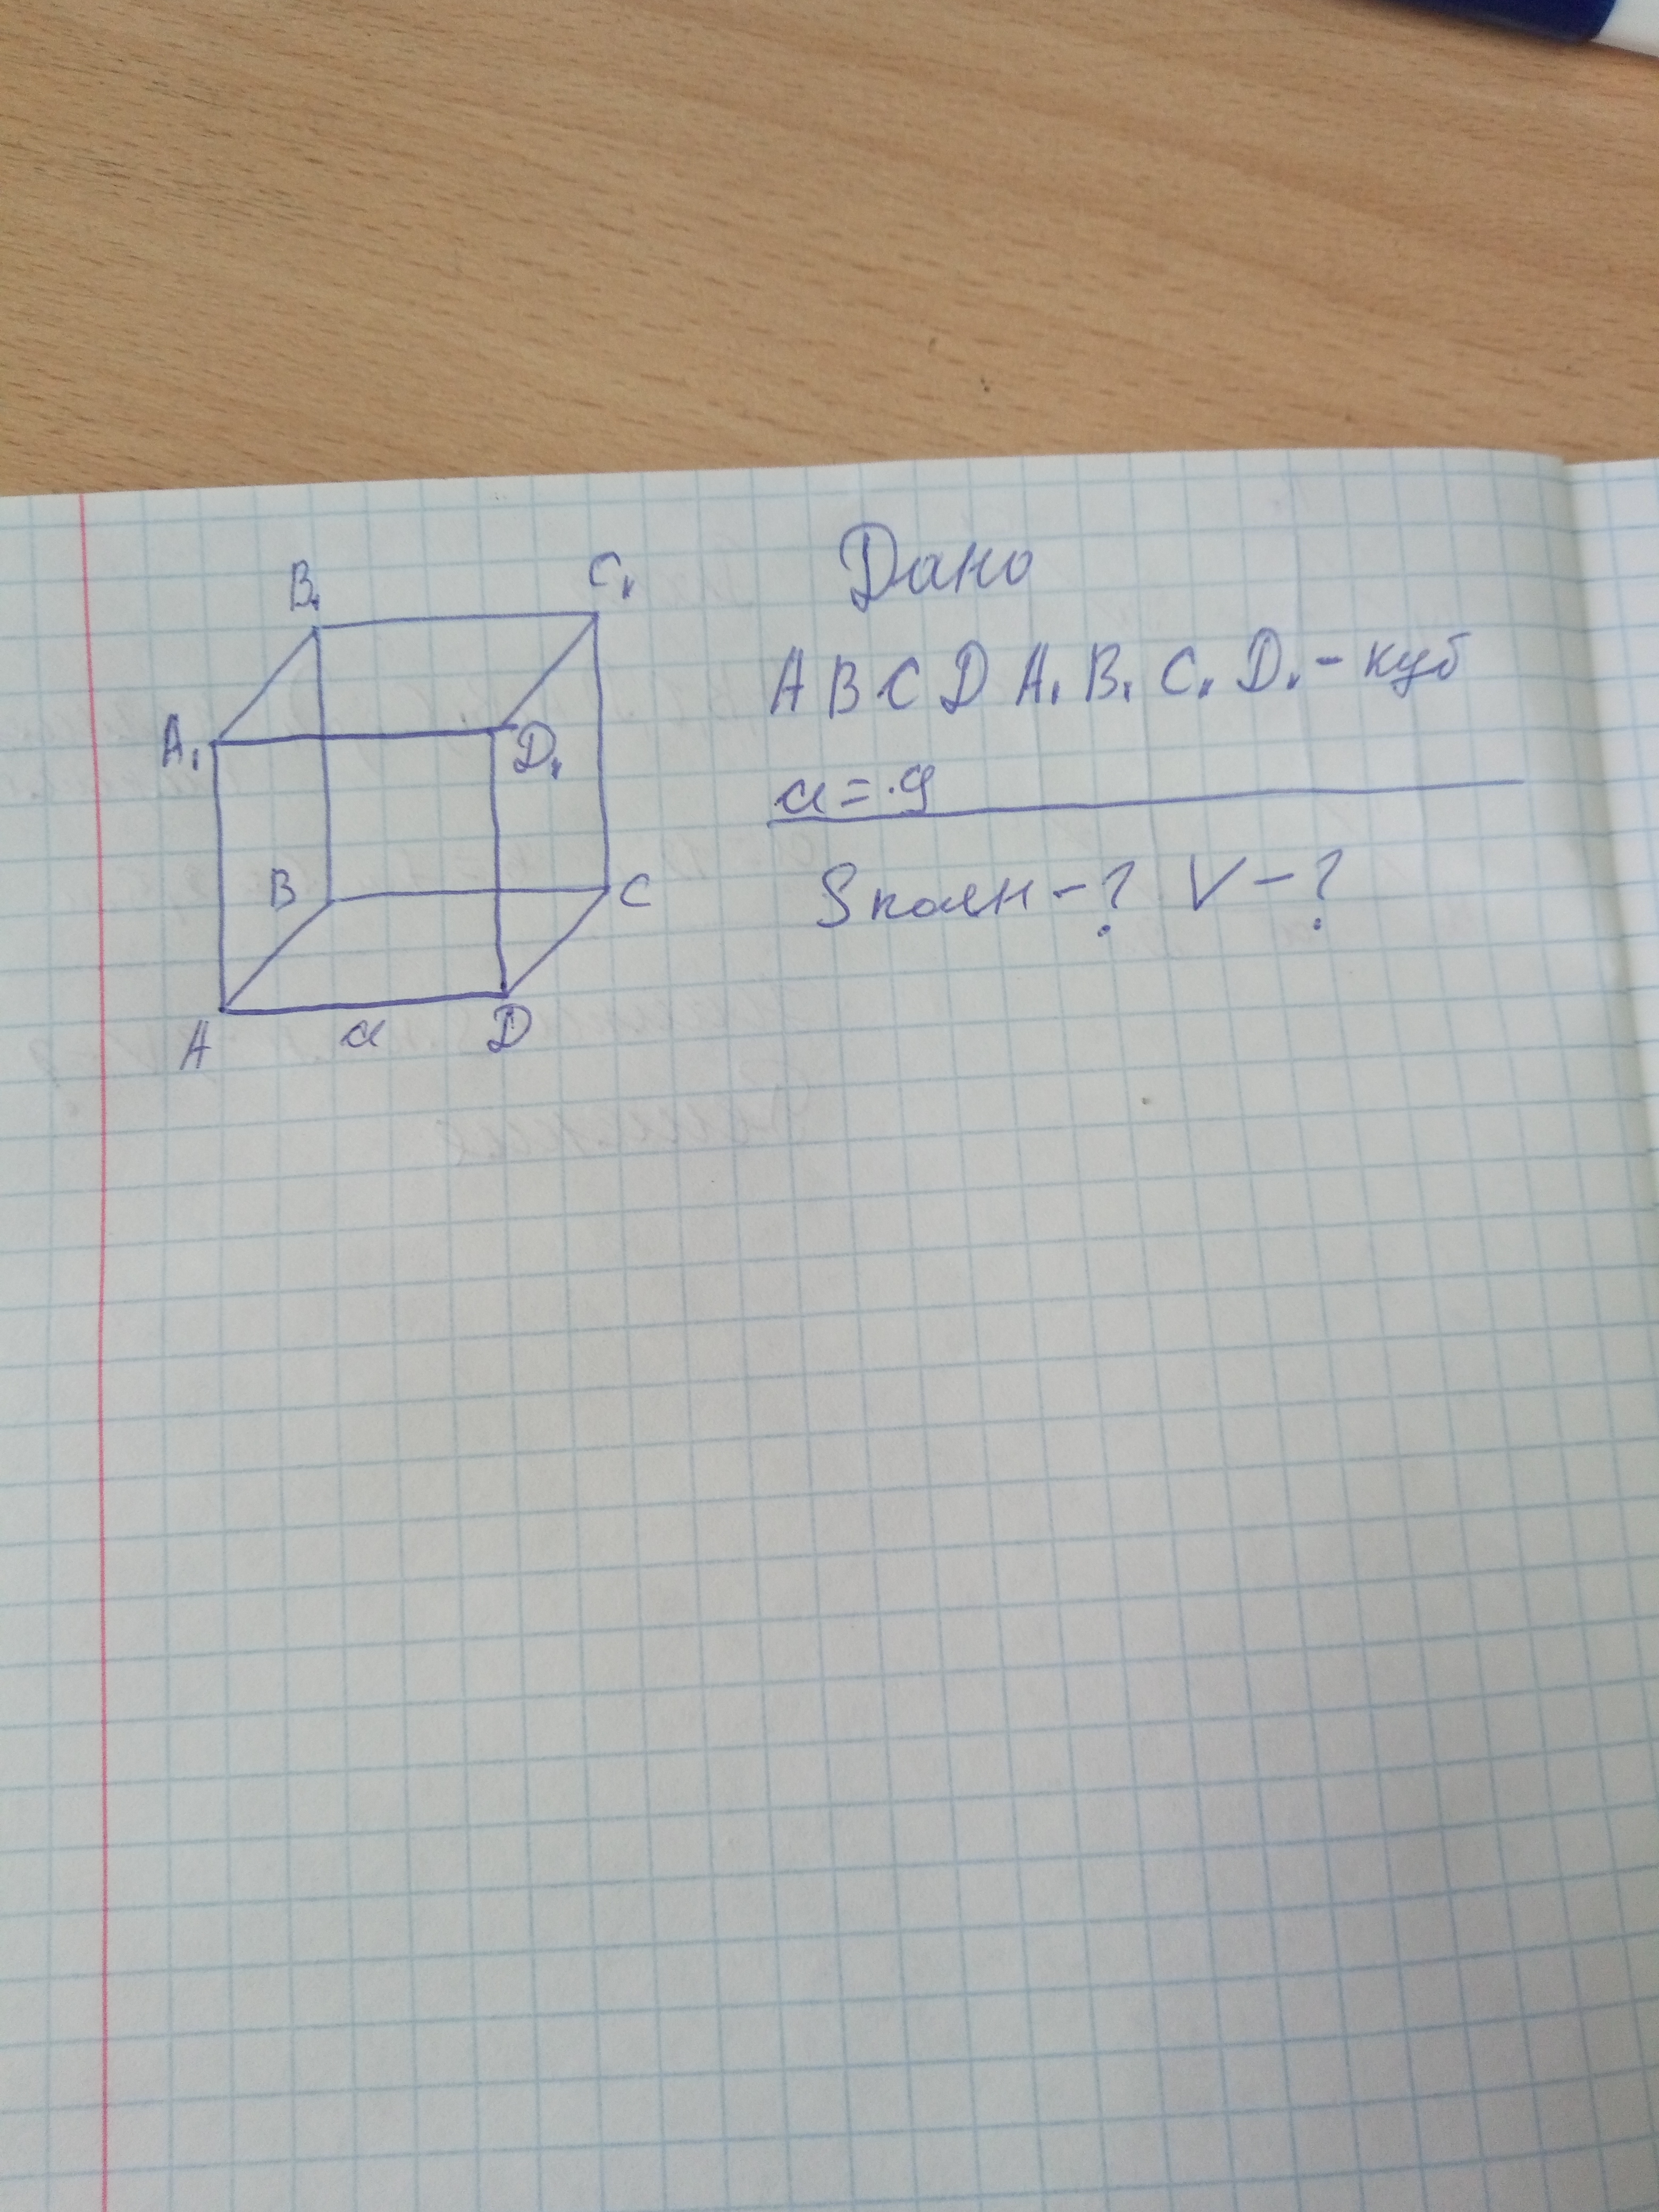 B₁ C₁
A₁ D₁
B C
A a D
Дано
ABCDA₁B₁C₁D₁ - куб
a = 9
Sполн - ? V - ?